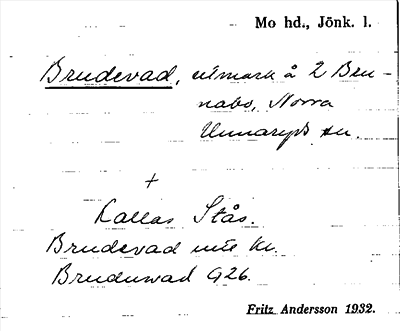 Mo hd., Jönk. l.
Brudevad, utmark å 2 Bru-
nabo, Norra
Unnaryds sn.
+
Kallas Stås.
Brudevad
Bruduwad G26.
Fritz Andersson 1932.